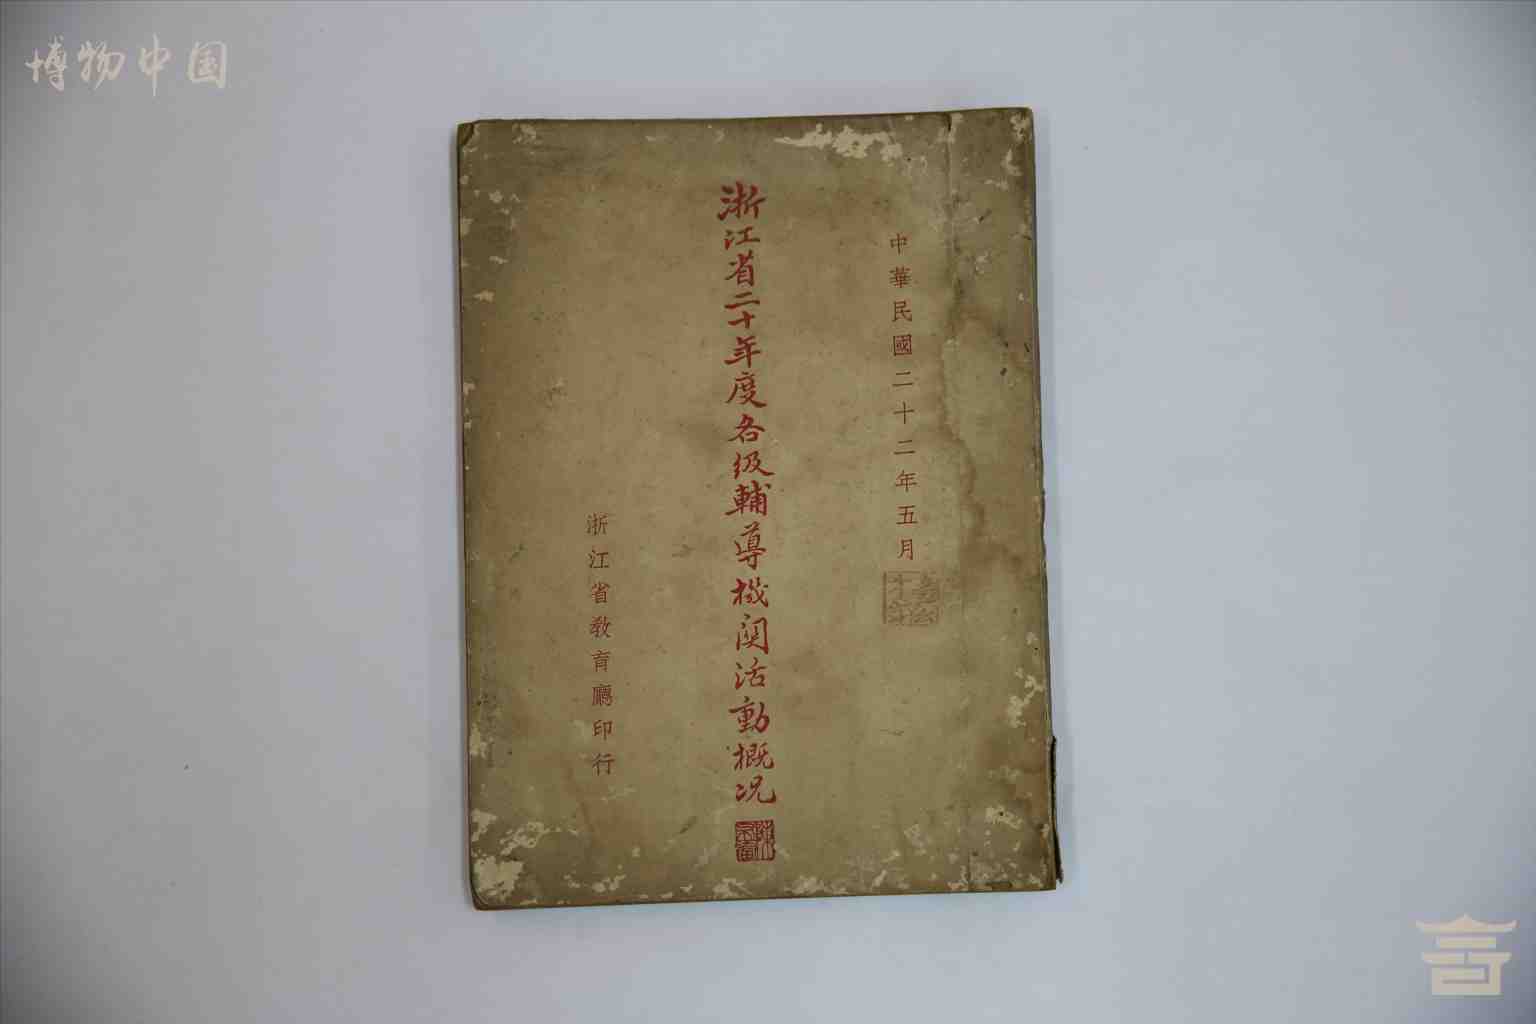 博物中国
中華民國二十二年五月
浙江省二十年度各级輔導機関活動概况
浙江省教育廳印行